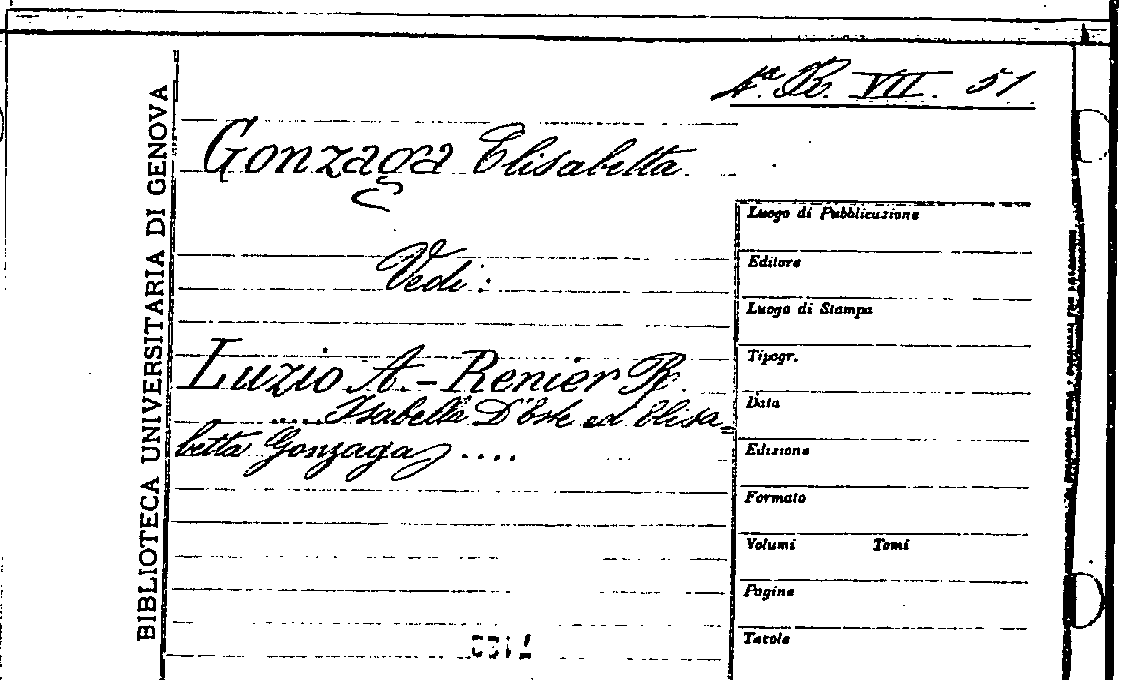 4ª. R. VII. 51
BIBLIOTECA UNIVERSITARIA DI GENOVA
Gonzaga Elisabetta
Vedi:
Luzio A. - Renier R.
.... Isabella D'Este ed Elisa-
betta Gonzaga ....
Luogo di Pubblicazione
Editore
Luogo di Stampa
Tipogr.
Data
Edizione
Formato
Volumi Tomi
Pagine
Tavole